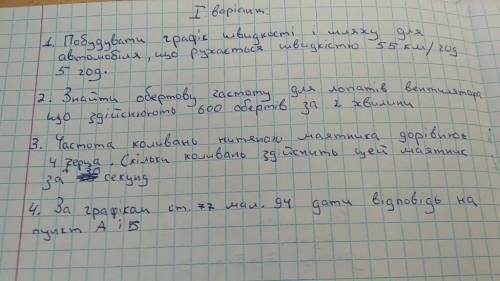 І варіант.
1. Побудувати графік швидкості і шляху для
автомобіля, що рухається швидкістю 55 км/год
5 год.
2. Знайти обертову частоту для лопатів вентилятора
що здійснюють 600 обертів за 2 хвилини
3. Частота коливань нитяного маятника дорівнює
4 герца. Скільки коливань здійснить цей маятник
за 30 секунд
4. За графікам ст. 77 мал. 94 дати відповідь на
пункт А і Б